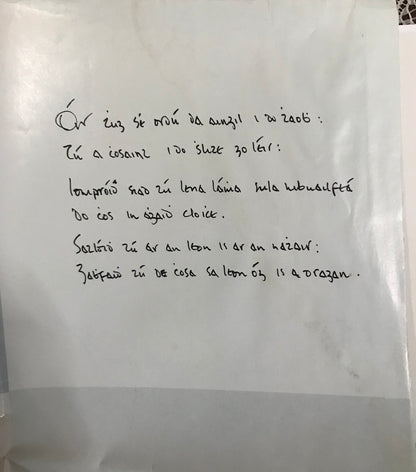 Óir ṫug sé ordú dá aingil i do ṫaoḃ:
Tú a ċosaint i do ṡliġe go léir:
Iompróiḋ siad tú lena láṁa sula mbuailfeá
Do ċos in aġaiḋ cloiċe.
Satlóiḋ tú ar an leon is ar an naṫair:
Gaḃfaiḋ tú de ċosa sa leon óg is a dragan.